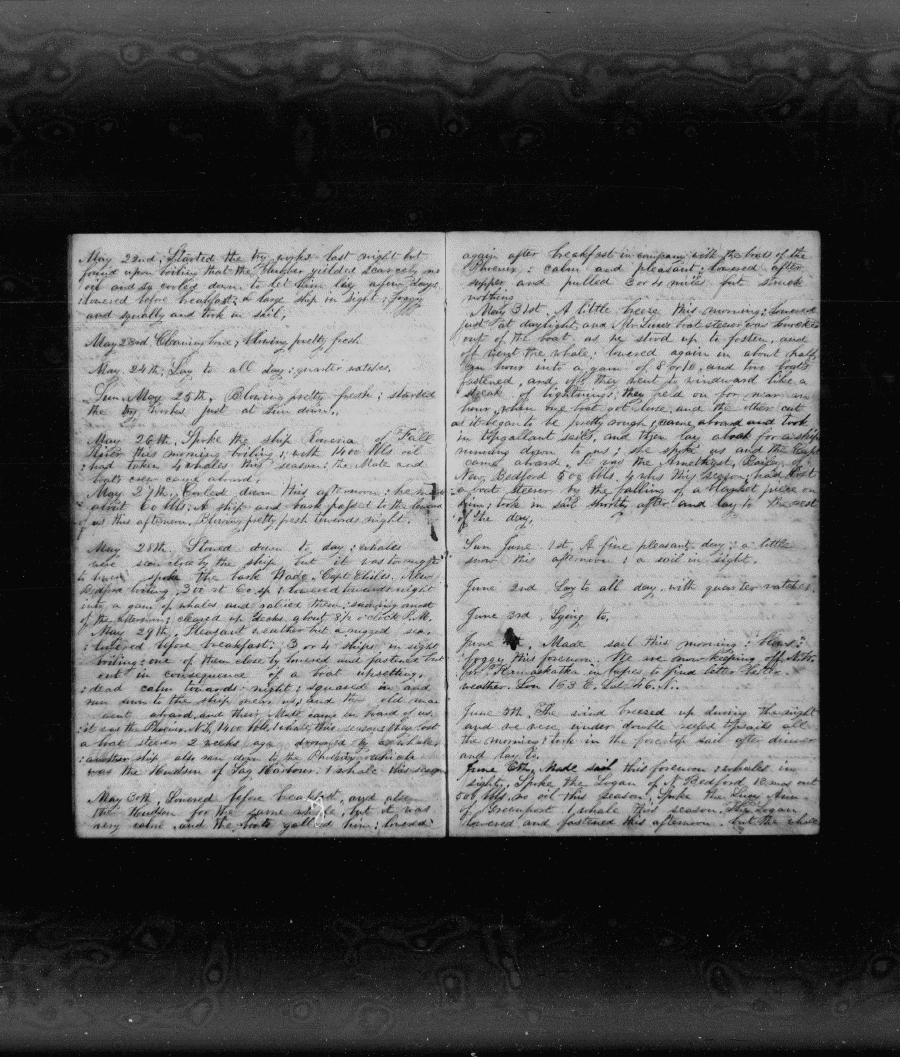 May 22nd; Started the try works last night but
found upon boiling that the blubber yielded scarcely no
oil and so cooled down to let them lay a few days
lowered before breakfast; a large ship in sight; foggy
and squally and took in sail.
May 23rd Cleaning bone; blowing pretty fresh
May 24th; Lay to all day; quarter watches.
Sun May 25th, Blowing pretty fresh; started
the try works just at sun down.
May 26th, Spoke the ship of Fall
River this morning boiling; with 1400 bbls oil
had taken 4 whales this season; the Mate and
boats crew came aboard.
May 27th, Cooled down this afternoon; he made
about 60 bbls. A ship and bark passed to the leeward
of us this afternoon. Blowing pretty fresh towards night.
May 28th. Stowed down to day; whales
were seen close by the ship but it was too rough
to lower; spoke the bark Wade, Capt , New
Bedford boiling, 300 ; lowered towards night
into a gam of whales and ; most
of the afternoon; cleared up decks about 8½ o'clock P.M.
May 29th, Pleasant weather but a rugged sea.
lowered before breakfast; 3 or 4 ships in sight
boiling; one of them close by lowered and fastened but
out in consequence of a boat upsetting.
dead calm towards night; squared in and
run down to the ship near us; and the old man
went aboard and their Mate came on board of us
it was the Phoenix, 1400 bbls, 1 whale this season; they lost
a boat steerer 2 weeks ago drowned by a whale
another ship also run down to the Phoenix which
was the Hudson of Sag Harbour; 1 whale this season
May 30th, Lowered before breakfast, and also
the Hudson for the same whale, but it was
very calm and the boats gallied him; lowered
again after breakfast in company with the boats of the
Phoenix; calm and pleasant; lowered after
supper and pulled 3 or 4 miles but struck
nothing
May 31st. A little breeze this morning; lowered
just at daylight and Mr boat steerer was knocked
out of the boat, as he stood up to fasten, and
off went the whale; lowered again in about half
an hour into a gam of 8 or 10, and two boats
fastened, and off they went to windward like a
streak of lightning; they held on for near an
hour when one boat got loose, and the other cut
as it began to be pretty rough; came aboard and took
in topgallant sails, and then lay aback for a ship
running down to us; she spoke us and the Capt
came aboard. It was the Amethyst, of
New Bedford 500 bbls. 4 whs this season, had lost
a boat steerer by the falling of a blanket piece on
him; took in sail shortly after and lay to the rest
of the day.
Sun June 1st, A fine pleasant day; a little
snow this afternoon; a sail in sight.
June 2nd Lay to all day, with quarter watches.
June 3rd, Lying to,
June , Made sail this morning;
foggy this forenoon. We are now keeping off N.W.
for Kamaskatka in hopes to find better
weather. Lon 163 E. Lat 46 N.
June 5th, The wind breezed up during the night
and we were under double reefed topsails all
the morning; took in the foretop sail after dinner
and lay to.
June 6th, Made sail this forenoon; whales in
sight, Spoke the Logan of N Bedford, 10 mos out
500 bbls, no oil this season; Spoke the Lucy Ann
of Greenport 1 whale this season. The Logan
lowered and fastened this afternoon, but the whale